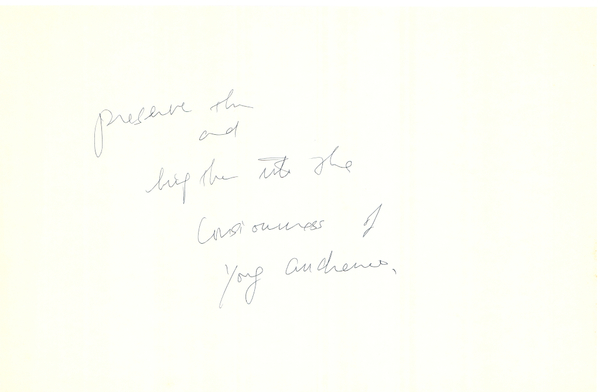 preserve them
and
bring them into the
Consciousness of
Young audiences.